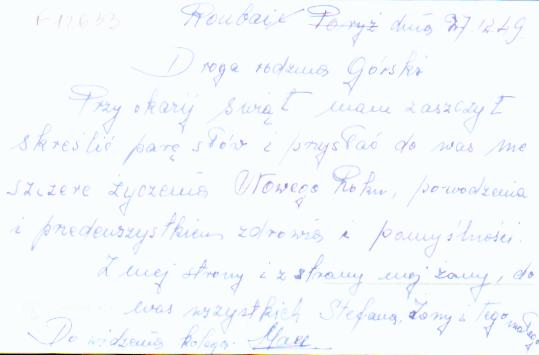 F 12653
Roubaix Paryż dnia 27 12 49
Droga rodzina Górski
Przy okazij świąt mam zaszczyt
skreślić parę słów i przysłać do was me
szczere życzenia Nowego Roku, powodzenia
i przedewszystkiem zdrowia i pomyślności.
Z mej strony i z strony mej żony, do
was wszystkich Stefana, żony i tego małego
Do widzenia kolega.